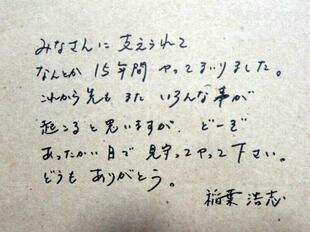 みなさんに 支えられて
なんとか 15年間 やってまいりました。
これから先も また いろんな事が
起こると思いますが、どーぞ
あったかい目で 見守ってやって下さい。
どうも ありがとう。
稲葉 浩志